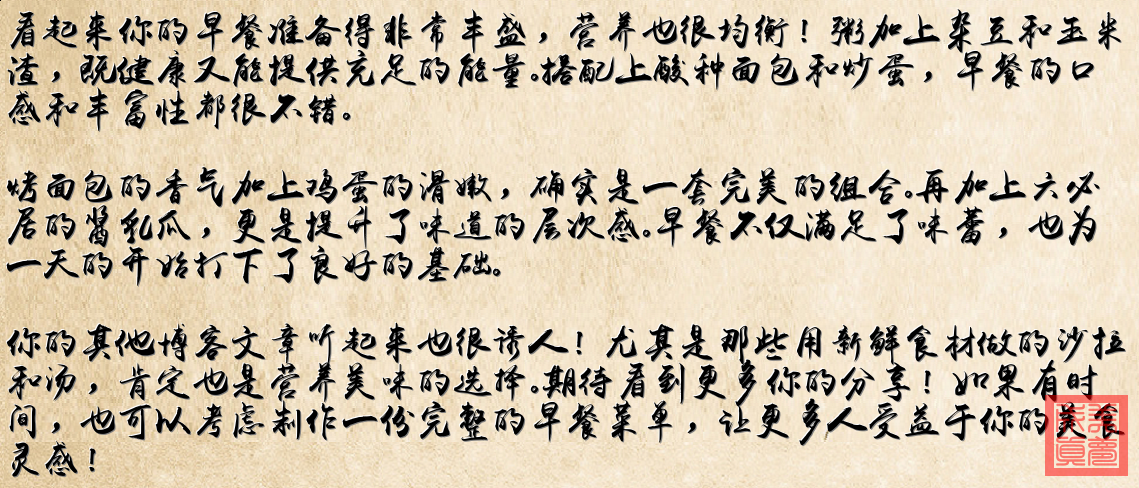 看起来你的早餐准备得非常丰盛，营养也很均衡！粥加上杂豆和玉米
渣，既健康又能提供充足的能量。搭配上酸种面包和炒蛋，早餐的口
感和丰富性都很不错。
烤面包的香气加上鸡蛋的滑嫩，确实是一套完美的组合。再加上六必
居的酱乳瓜，更是提升了味道的层次感。早餐不仅满足了味蕾，也为
一天的开始打下了良好的基础。
你的其他博客文章听起来也很诱人！尤其是那些用新鲜食材做的沙拉
和汤，肯定也是营养美味的选择。期待看到更多你的分享！如果有时
间，也可以考虑制作一份完整的早餐菜单，让更多人受益于你的美食
灵感！